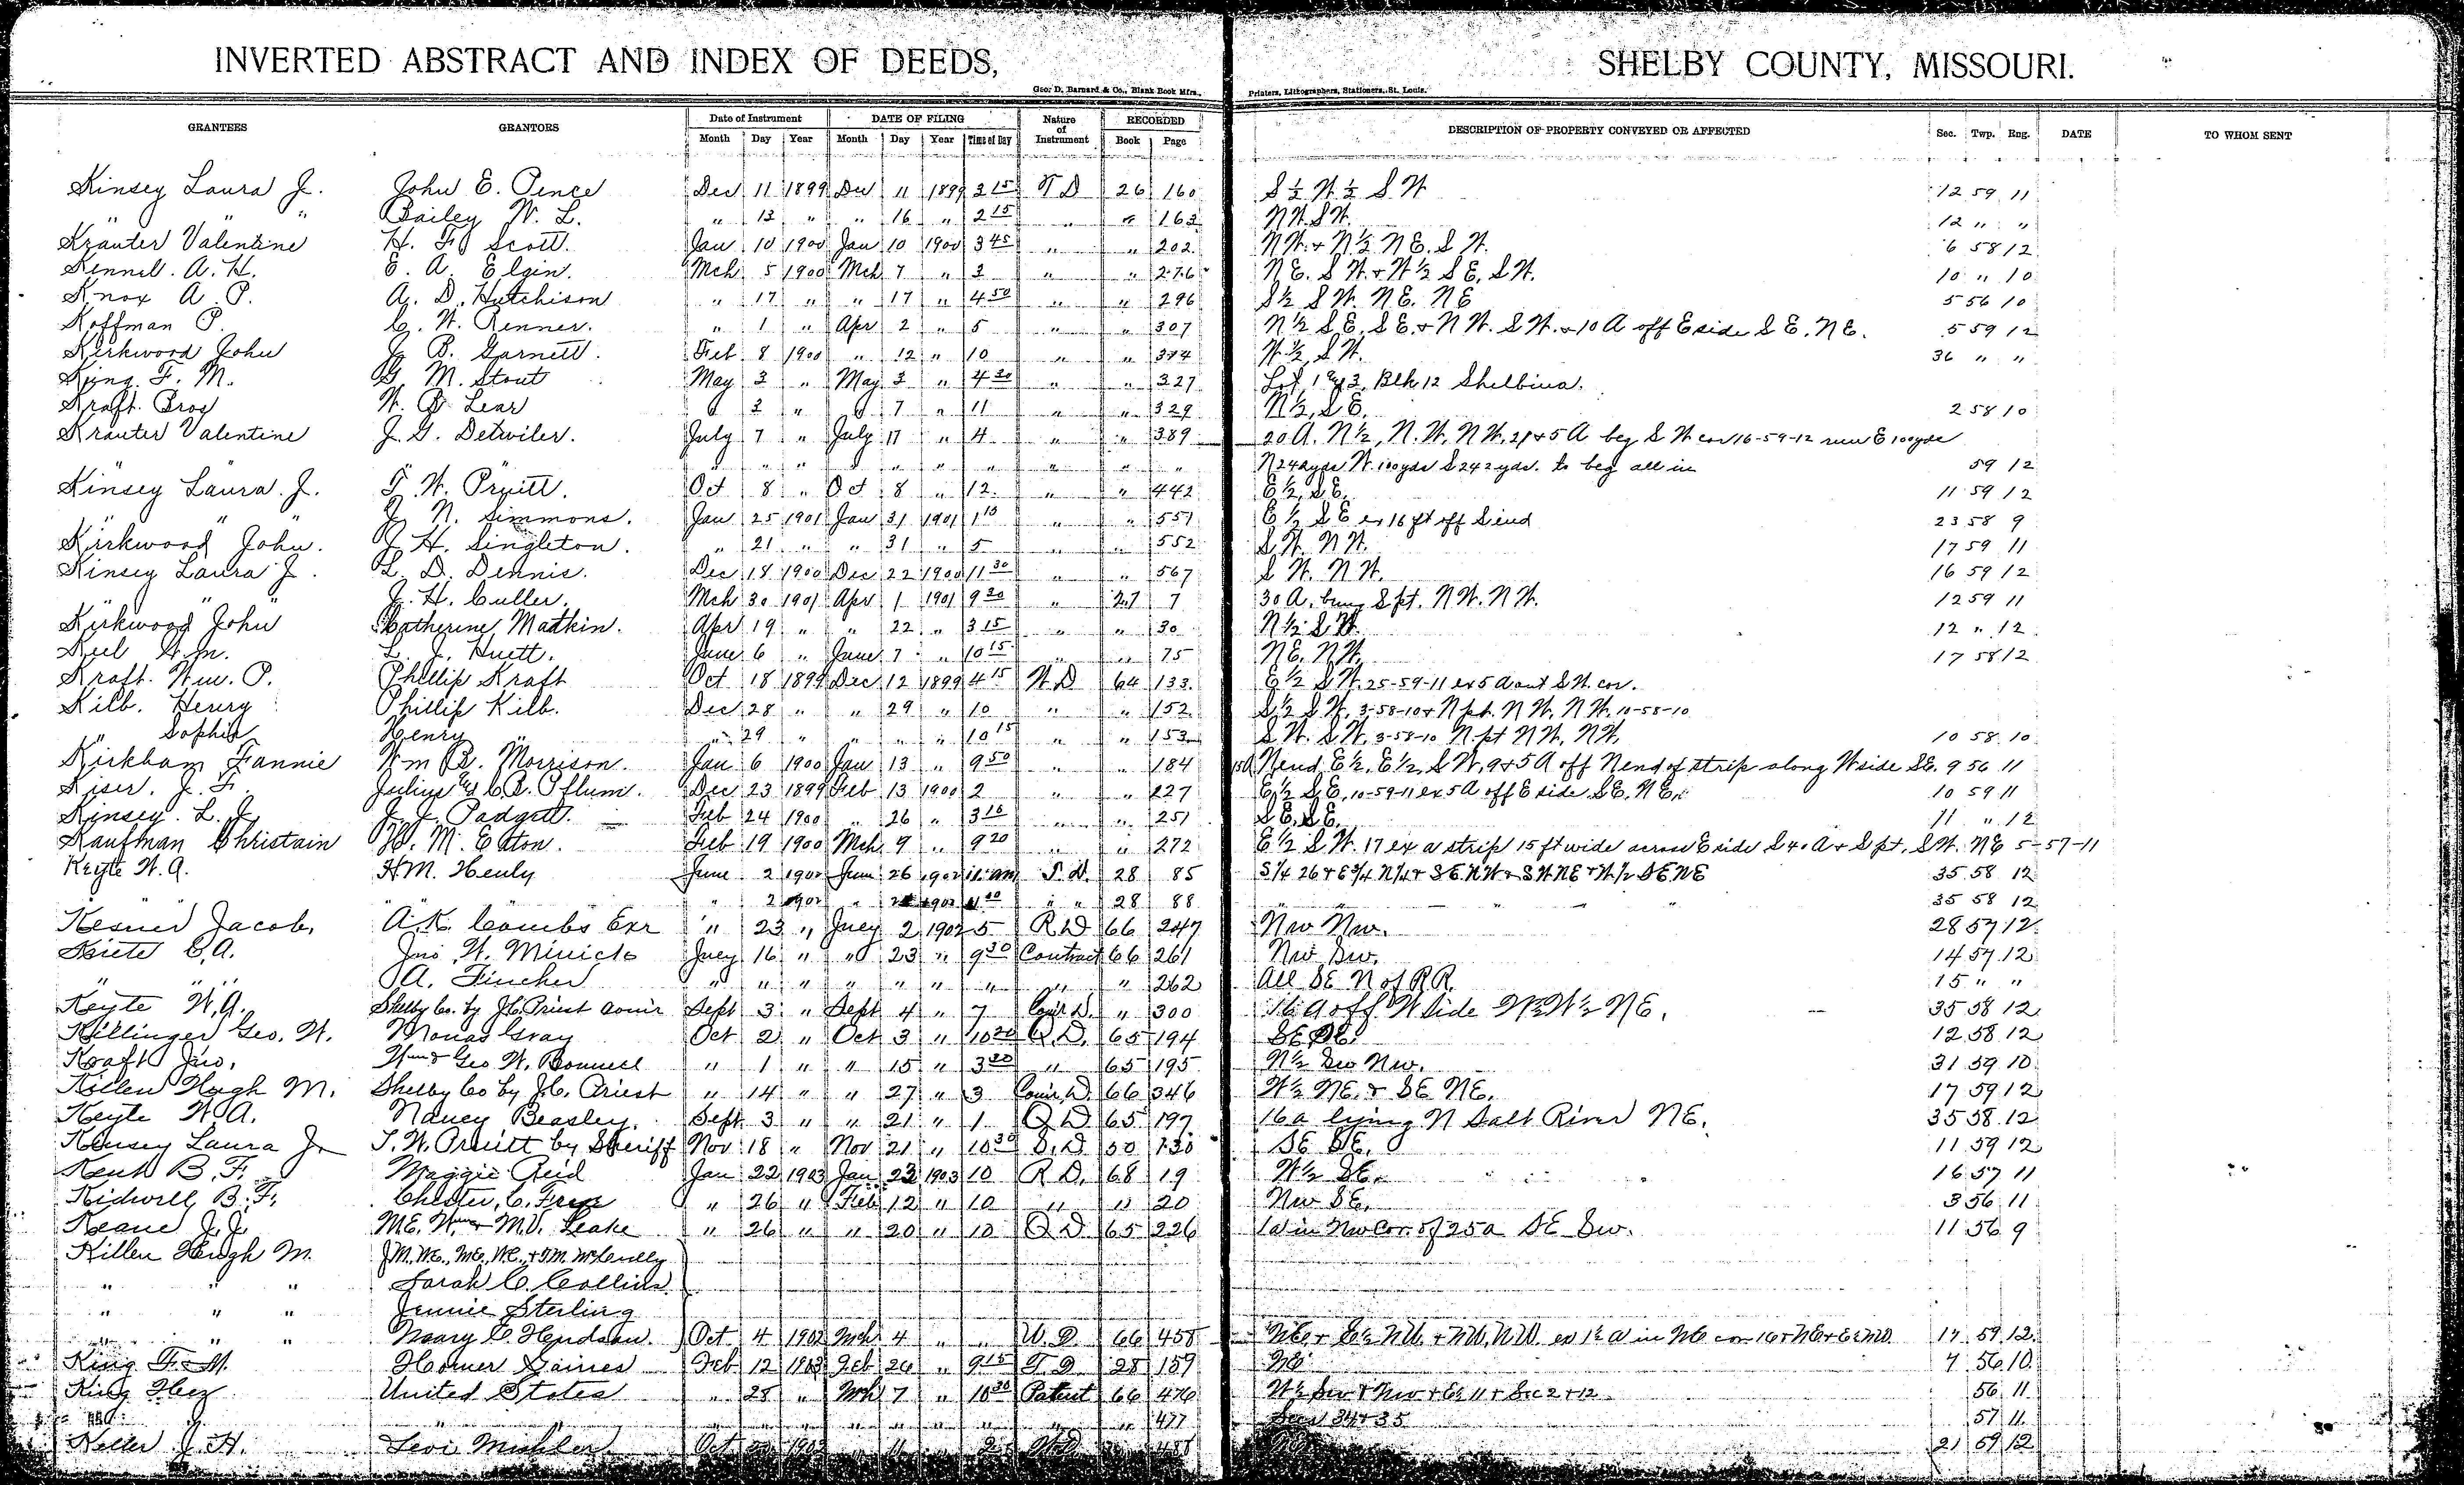 INVERTED ABSTRACT AND INDEX OF DEEDS, SHELBY COUNTY, MISSOURI.
Geo. D. Barnard & Co., Blank Book Mfrs., Printers, Lithographers, Stationers, St. Louis.
GRANTEES GRANTORS Date of Instrument DATE OF FILING Nature of Instrument RECORDED DESCRIPTION OF PROPERTY CONVEYED OR AFFECTED Sec. Twp. Rng. DATE TO WHOM SENT
Month Day Year Month Day Year Time of Day Book Page
Kinsey Laura J. John E. Pence Dec 11 1899 Dec 11 1899 3 15 T D 26 160 S ½ W ½ S W 12 59 11
" " " Bailey W. L. " 13 " " 16 " 2 15 " " 163 N W. S W. 12 " "
Krauter Valentine H. F. Scott. Jan 10 1900 Jan 10 1900 3 45 " " 202 N W. + N ½ N E. S W. 6 58 12
Kennel. A. H. E. A. Elgin. Mch 5 1900 Mch 7 " 3 " " 276 N E. S W. + W ½ S E. S W. 10 " 10
Knox A. P. A. D. Hutchison " 17 " " 17 " 4 50 " " 296 S ½ S W. N E. N E 5 56 10
Koffman P. C. W. Renner. " 1 " Apr 2 " 5 " " 307 N ½ S E. S E. + N W. S W. + 10 A off E side S E. N E. 5 59 12
Kirkwood John J. B. Garnett. Feb. 8 1900 " 12 " 10 " " 374 W ½, S W. 36 " "
King. F. M. G. M. Stout May 3 " May 3 " 4 30 " " 327 Lot 1 & 3, Blk 12 Shelbina.
Kraft. Bros W. B. Lear " 3 " " 7 " 11 " " 329 N ½, S E. 2 58 10
Krauter Valentine J. G. Detwiler. July 7 " July 17 " 4 " " 389 20 A. N ½, N. W. N W. 21 + 5 A beg S W cor 16-59-12 run E 100 yds
" " " " " " " " " N 242 yds W. 100 yds S 242 yds. to beg all in 59 12
Kinsey Laura J. T. W. Pruitt. Oct 8 " Oct 8 " 12 " " 442 E ½, S E. 11 59 12
" " " J. N. Simmons. Jan 25 1901 Jan 31 1901 1 15 " " 551 E ½ S E ex 16 ft off S end 23 58 9
Kirkwood John. J. H. Singleton. " 21 " " 31 " 5 " " 552 S W. N W. 17 59 11
Kinsey Laura J. L. D. Dennis. Dec 18 1900 Dec 22 1900 11 30 " " 567 S W. N W. 16 59 12
" " " J. H. Culler. Mch 30 1901 Apr 1 1901 9 30 " 27 7 30 A. being S pt. N W. N W. 12 59 11
Kirkwood John Catherine Matkin. Apr 19 " " 22 " 3 15 " " 30 N ½ S W. 12 " 12
Wm. L. J. Huett. June 6 " June 7 " 10 15 " " 75 N E. N W. 17 58 12
Kraft. Wm. P. Phillip Kraft Oct 18 1899 Dec 12 1899 4 15 W D 64 133 E ½ S W. 25-59-11 ex 5 A out S W. cor.
Kilb. Henry Phillip Kilb. Dec 28 " " 29 " 10 " " 152 S ½ S W. 3-58-10 + N pt. N W. N W. 10-58-10
" Sophia Henry " " 29 " " " " 10 15 " " 153 S W. S W. 3-58-10 N. pt N W. N W. 10 58 10
Kirkham Fannie Wm B. Morrison. Jan 6 1900 Jan 13 " 9 50 " " 184 15 A N end E ½, E ½, S W. 9 + 5 A off N end of strip along W side S E. 9 56 11
Kiser. J. F. Julius & C. B. Pflum. Dec 23 1899 Feb 13 1900 2 " " 227 E ½ S E. 10-59-11 ex 5 A off E side S E. N E. 10 59 11
Kinsey. L. J. J. J. Padgett. Feb 24 1900 " 26 " 3 15 " " 251 S E. S E. 11 " 12
Kaufman Christain H. M. Eaton. Feb 19 1900 Mch 9 " 9 20 " " 272 E ½ S W. 17 ex a strip 15 ft wide across E side S 40 A + S pt. S W. N E 5-57-11
Keyte W. A. H M. Henly June 2 1902 June 26 1902 11 am T. D. 28 85 35 58 12
" 2 1902 " " " 28 88 " " " 35 58 12
Kesner Jacob. A. K. Combs Exr " 23 " July 2 1902 5 R D 66 247 Nw Nw. 28 57 12
C. A. Jno W. Minick July 16 " " 23 " 9 30 Contract 66 261 Nw Sw. 14 57 12
" " A. Fincher " " " " " " " " " 262 All SE N of RR. 15 " "
Keyte W. A. Shelby Co. by J. C. Priest comr Sept 3 " Sept 4 " 7 Com'r D. " 300 16 A off W side W ½ W ½ NE. 35 58 12
Killinger Geo. W. Gray Oct 2 " Oct 3 " 10 20 Q. D. 65 194 SE SE. 12 58 12
Kraft Jno. Wm & Geo W. Bonnell " 1 " " 15 " 3 30 " 65 195 N ½ Sw Nw. 31 59 10
Killen Hugh M. Shelby Co by J. C. Priest " 14 " " 27 " 3 Com'r D. 66 346 W ½ NE. & SE NE. 17 59 12
Keyte W. A. Nancy Beasley. Sept 3 " " 21 " 1 Q D 65 197 16 a lying N Salt River NE. 35 58 12
Kinsey Laura J. T. W. Pruitt by Sheriff Nov 18 " Nov 21 " 10 30 S. D. 50 130 SE SE. 11 59 12
B. F. Maggie Reid Jan 22 1903 Jan 23 1903 10 R D. 68 19 W ½ SE. 16 57 11
Kidwell B. F. Chester C. " 26 " Feb 12 " 10 " " 20 Nw SE. 3 56 11
Keane J. J. M. E. Wm & M. V. Leake " 26 " " 20 " 10 Q D 65 226 1 a in Nw Cor. of 25 a SE Sw. 11 56 9
Killen Hugh M. J M., W. E.,
" " " Sarah C. Collins
" " " Jennie Sterling
" " " Mary E. Henderson. Oct 4 1902 Mch 4 " " W. D. 66 458 17 59 12
King F. M. Homer Gaines Feb 12 1903 Feb 26 " 9 15 T D 28 159 NE 4 56 10
King United States " 28 " Mch 7 " 10 30 Patent 66 476 W ½ Sw + Nw + E ½ 11 + Sec 2 + 12 56 11
" " " " " " " " " 477 Secs 34 + 35 57 11
Keller J. H. Levi Oct 21 59 12